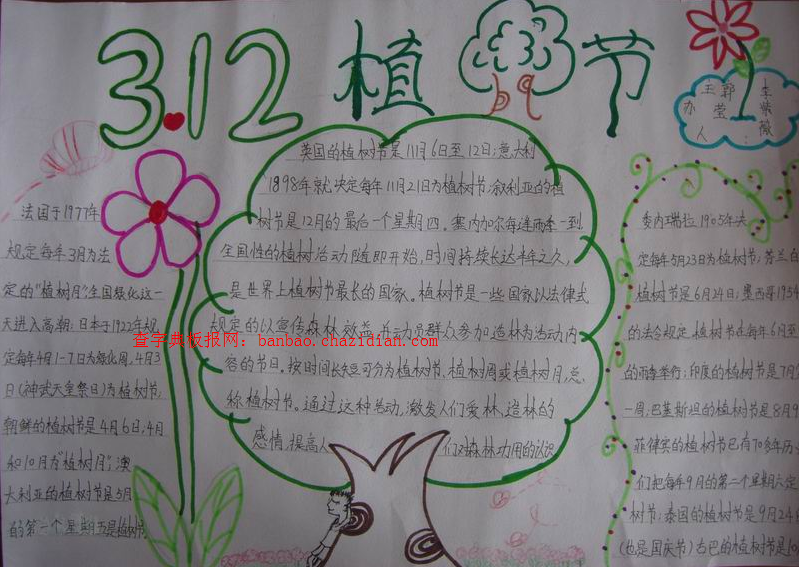 3.12 植 节
主办人：
郭莹
李紫薇
法国于1977年
规定每年3月为法
定的"植树月"，全国绿化这一
天进入高潮；日本于1922年规
定每年4月1-7日为绿化周，4月3
日（神武天皇祭日）为植树节，
朝鲜的植树节是4月6日；4月
和10月为"植树月"；澳
大利亚的植树节是5月
的第 个星期五是植树节
英国的植树节是11月6日至12日；意大利
1898年就决定每年11月21日为植树节；叙利亚的植
树节是12月的最后一个星期四。塞内加尔每逢雨季一到
全国性的植树活动随即开始，时间持续长达半年之久，
是世界上植树节最长的国家。植树节是一些国家以法律式
规定的以宣传森林效益，并动员群众参加造林为活动内
容的节日。按时间长短可分为植树节、植树周或植树月，总
称植树节。通过这种活动，激发人们爱林、造林的
感情，提高人们对森林功用的认识
委内瑞拉1905年决
定每年5月23日为植树节；芬兰白
植树节是6月24日；墨西哥1954
的法令规定，植树节在每年6月至
的雨季举行；印度的植树节是7月
一周；巴基斯坦的植树节是8月9
菲律宾的植树节已有70多年历
们把每年9月的第二个星期六定
树节；泰国的植树节是9月24日
（也是国庆节）古巴的植树节是10
查字典板报网：banbao.chazidian.com